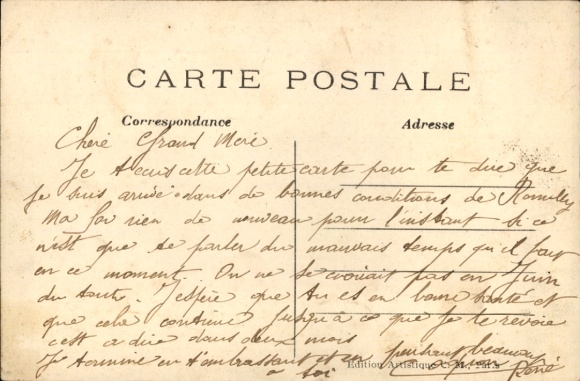 CARTE POSTALE
Correspondance
Adresse
Cheré Grand Meré
Je t'ecris cette petite carte pour te dire que
je suis arrivé dans de bonnes conditions de Romilly
Ma foi rien de nouveau pour l'instant si ce
n'est que de parler du mauvais temps qu'il fait
en ce moment. On ne se croirait pas en Juin
du tout. J'espère que tu es en bonne santé et
que cela continue jusqu'a ce que je te revoie
c'est a dire dans deux mois
Je termine en t'embrassant et en pensant beaucoup
a toi
René
Edition Artistique Paris